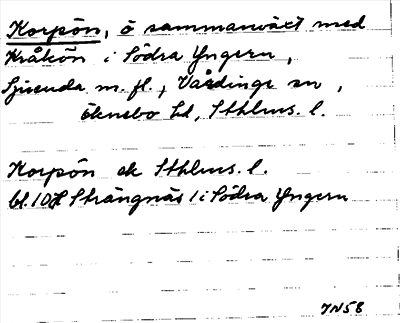 Korpön, ö sammanväxt med
Kråkön i Södra Yngern,
Sjuenda m. fl., Vårdinge sn,
Öknebo hd, Sthlms. l.
Korpön ek Sthlms. l.
bl. 10H Strängnäs 1 i Södra Yngern
JN58